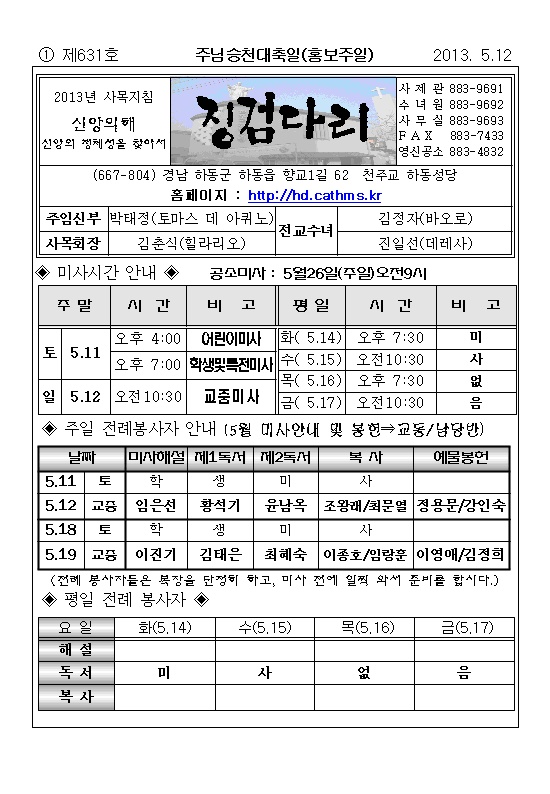 ① 제631호 주님승천대축일(홍보주일) 2013. 5.12
2013년 사목지침
신앙의해
신앙의 정체성을 찾아서
징검다리
사 제 관 883-9691
수 녀 원 883-9692
사 무 실 883-9693
F A X 883-7433
영신공소 883-4832
(667-804) 경남 하동군 하동읍 향교1길 62 천주교 하동성당
홈페이지 : http://hd.cathms.kr
주임신부 박태정(토마스 데 아퀴노) 전교수녀 김정자(바오로)
사목회장 김춘식(힐라리오) 진일선(데레사)
◈ 미사시간 안내 ◈ 공소미사 : 5월26일(주일)오전9시
주 말 시 간 비 고 평 일 시 간 비 고
토 5.11 오후 4:00 어린이미사 화( 5.14) 오후 7:30 미
오후 7:00 학생및특전미사 수( 5.15) 오전10:30 사
일 5.12 오전10:30 교중미사 목( 5.16) 오후 7:30 없
금( 5.17) 오전10:30 음
◈ 주일 전례봉사자 안내 (5월 미사안내 및 봉헌⇒교동/남당반)
날짜 미사해설 제1독서 제2독서 복 사 예물봉헌
5.11 토 학 생 미 사
5.12 교중 임은선 황석기 윤남옥 조왕래/최문열 정용문/강인숙
5.18 토 학 생 미 사
5.19 교중 이진기 김태은 최혜숙 이종호/임량훈 이영애/김정희
(전례 봉사자들은 복장을 단정히 하고, 미사 전에 일찍 와서 준비를 합시다.)
◈ 평일 전례 봉사자 ◈
요 일 화(5.14) 수(5.15) 목(5.16) 금(5.17)
해 설
독 서 미 사 없 음
복 사